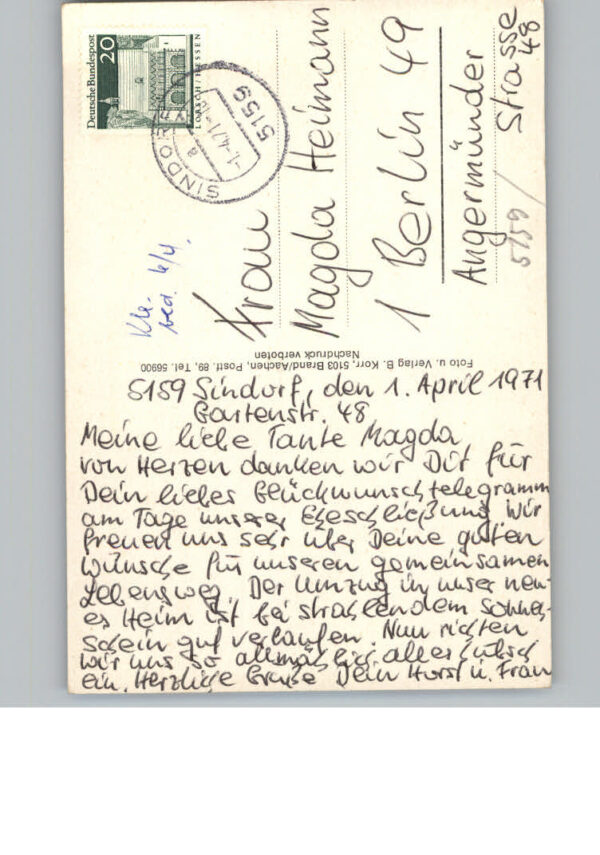 Deutsche Bundespost
20
LORSCH/HESSEN
SINDORF
5159
a
-1.-4.71-
Frau
Magda Heimann
1 Berlin 49
Angermünder
Strasse
48
5159/
6/4.
Foto u. Verlag B. Korr, 5103 Brand/Aachen, Postf. 89, Tel. 56900
Nachdruck verboten
5159 Sindorf, den 1. April 1971
Gartenstr. 48
Meine liebe Tante Magda,
von Herzen danken wir Dir für
Dein liebes Glückwunschtelegramm
am Tage unserer Eheschließung. Wir
freuen uns sehr über Deine guten
Wünsche für unseren gemeinsamen
Lebensweg. Der Umzug in unser neu-
es Heim ist bei strahlendem Sonnen-
schein gut verlaufen. Nun richten
wir uns so allmählich alles hübsch
ein. Herzliche Grüße Dein Horst u. Frau